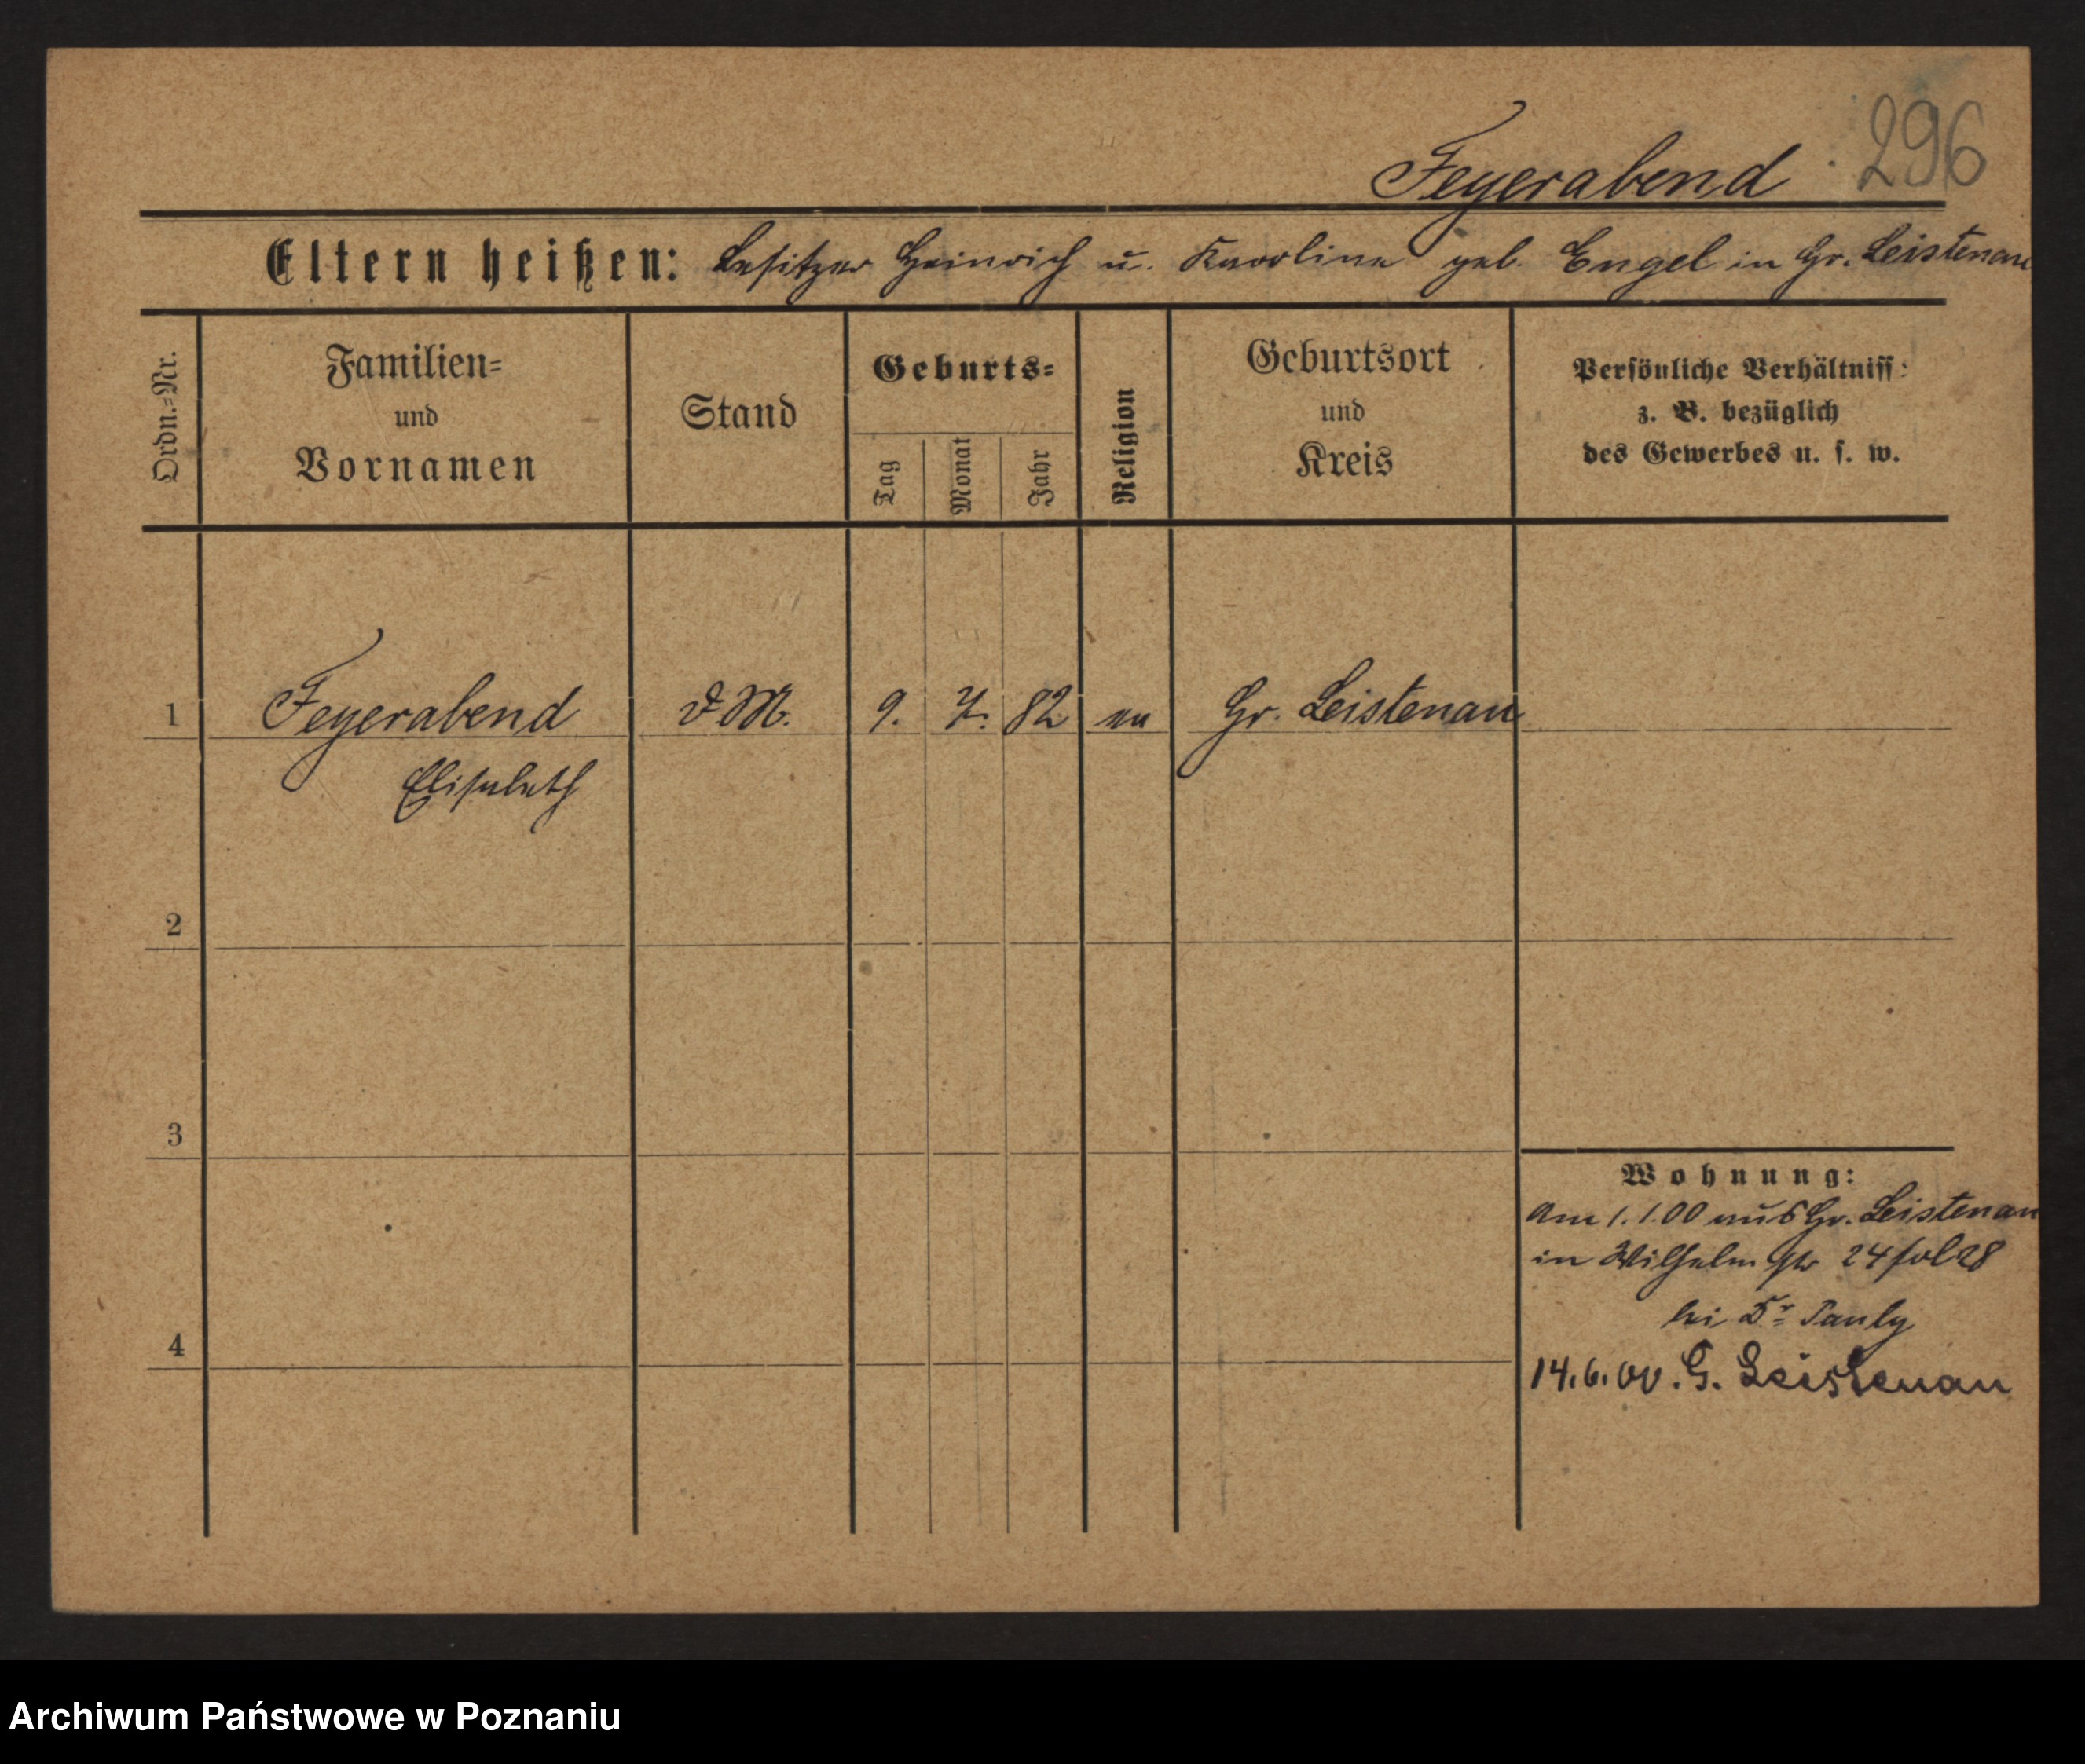 296
Feyerabend
Eltern heißen: Besitzer Heinrich u. Karoline geb. Engel in Gr. Leistenau
Ordn.-Nr.
Familien-
und
Vornamen
Stand
Geburts-
Tag
Monat
Jahr
Religion
Geburtsort
und
Kreis
Persönliche Verhältniss
z. B. bezüglich
des Gewerbes u. s. w.
1 Feyerabend D. M. 9. 7. 82 ev Gr. Leistenau
Elisabeth
2
3
4
Wohnung:
Am 1.1.00 aus Gr. Leistenau
in Wilhelm Str 24 fol 28
bei Dr Pauly
14.6.00. G. Leistenau
Archiwum Państwowe w Poznaniu